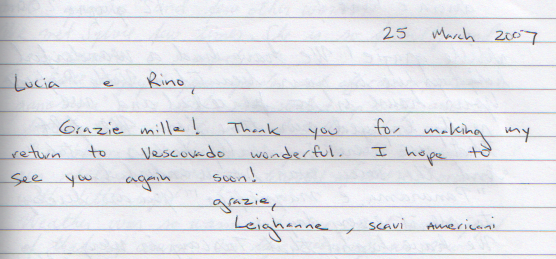 25 March 2007
Lucia e Rino,
Grazie mille! Thank you for making my
return to Vescovado wonderful. I hope to
see you again soon!
grazie,
Leighanne, scavi Americani